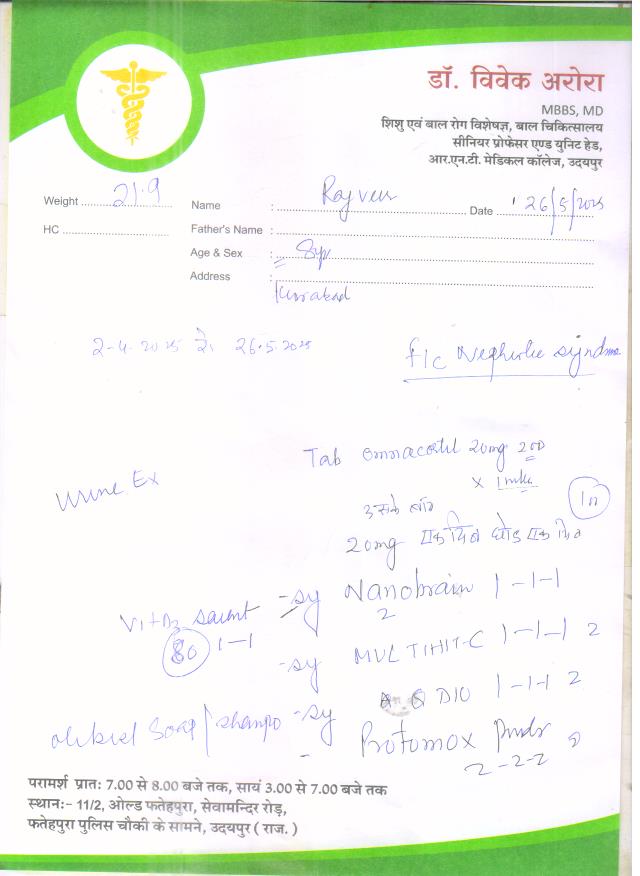 डॉ. विवेक अरोरा
MBBS, MD
शिशु एवं बाल रोग विशेषज्ञ, बाल चिकित्सालय
सीनियर प्रोफेसर एण्ड युनिट हेड,
आर.एन.टी. मेडिकल कॉलेज, उदयपुर
Weight 21.9
Name : Rajveer Date 26/5/2025
HC
Father's Name :
Age & Sex : 8yr
Address :
2-4-2025 से 26-5-2025
F/C Nephrotic syndrome
Tab omnacortil 20mg
Urine Ex
उसके बाद
20mg एक दिन छोड़ एक दिन
-sy Nanobrain 1-1-1
2
Vit D3 1-1
60
-sy MULTIHIT-C 1-1-1 2
-sy A Q DIO 1-1-1 2
soap/shampo
Protomox
2-2-2
परामर्श प्रातः 7.00 से 8.00 बजे तक, सायं 3.00 से 7.00 बजे तक
स्थान:- 11/2, ओल्ड फतेहपुरा, सेवामन्दिर रोड़,
फतेहपुरा पुलिस चौकी के सामने, उदयपुर ( राज. )